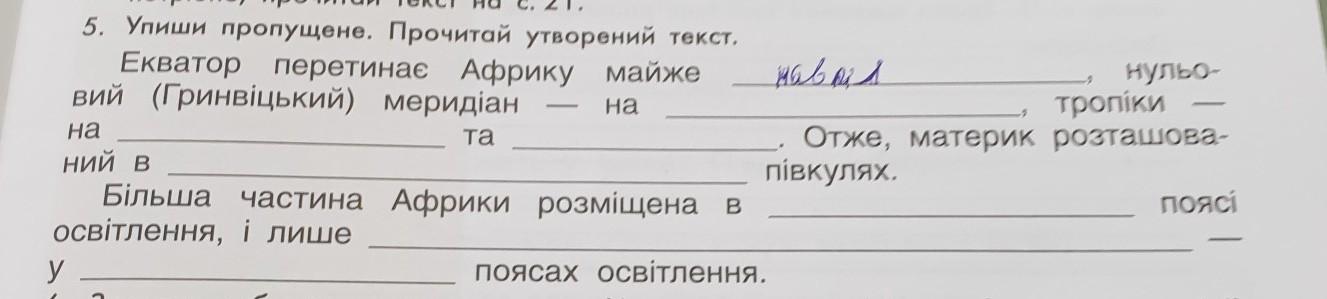 5. Упиши пропущене. Прочитай утворений текст.
Екватор перетинає Африку майже навпіл, нульо-
вий (Гринвіцький) меридіан — на ____, тропіки —
на ____ та ____. Отже, материк розташова-
ний в ____ півкулях.
Більша частина Африки розміщена в ____ поясі
освітлення, і лише ____ —
у ____ поясах освітлення.